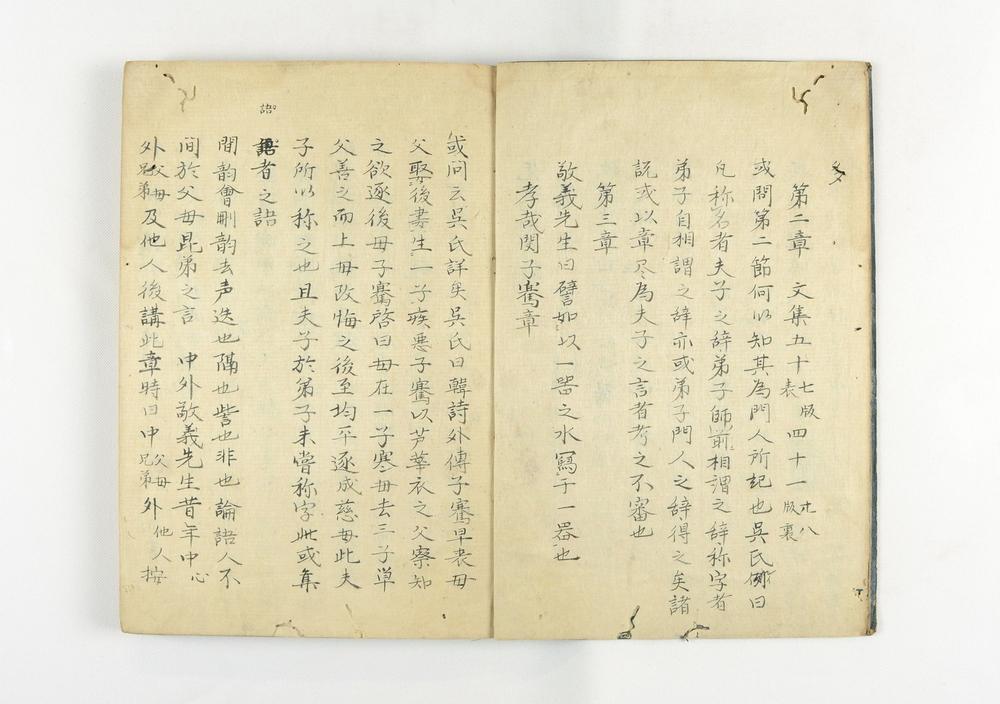 第二章　文集五十七版表四十一卅八版裏
或問第二節何以知其為門人所記也吳氏例曰
凡称名者夫子之辞弟子師前相謂之辞称字者
弟子自相謂之辞亦或弟子門人之辞得之矣諸
説或以章尽為夫子之言者考之不審也
第三章
敬義先生曰譬如以一器之水寫于一器也
孝哉閔子騫章
或問云吳氏詳矣吳氏曰韓詩外傳子騫早喪母
父娶後妻生一子疾悪子騫以芦華衣之父察知
之欲逐後母子騫啓曰母在一子寒母去三子単
父善之而上母改悔之後至均平逐成慈母此夫
子所以称之也且夫子於弟子未嘗称字此或集
語
語者之誤
間韵會刪韵去声迭也隔也訾也非也論語人不
間於父母昆弟之言　中外敬義先生昔年中心
外父母兄弟及他人後講此章時曰中父母兄弟外他人按